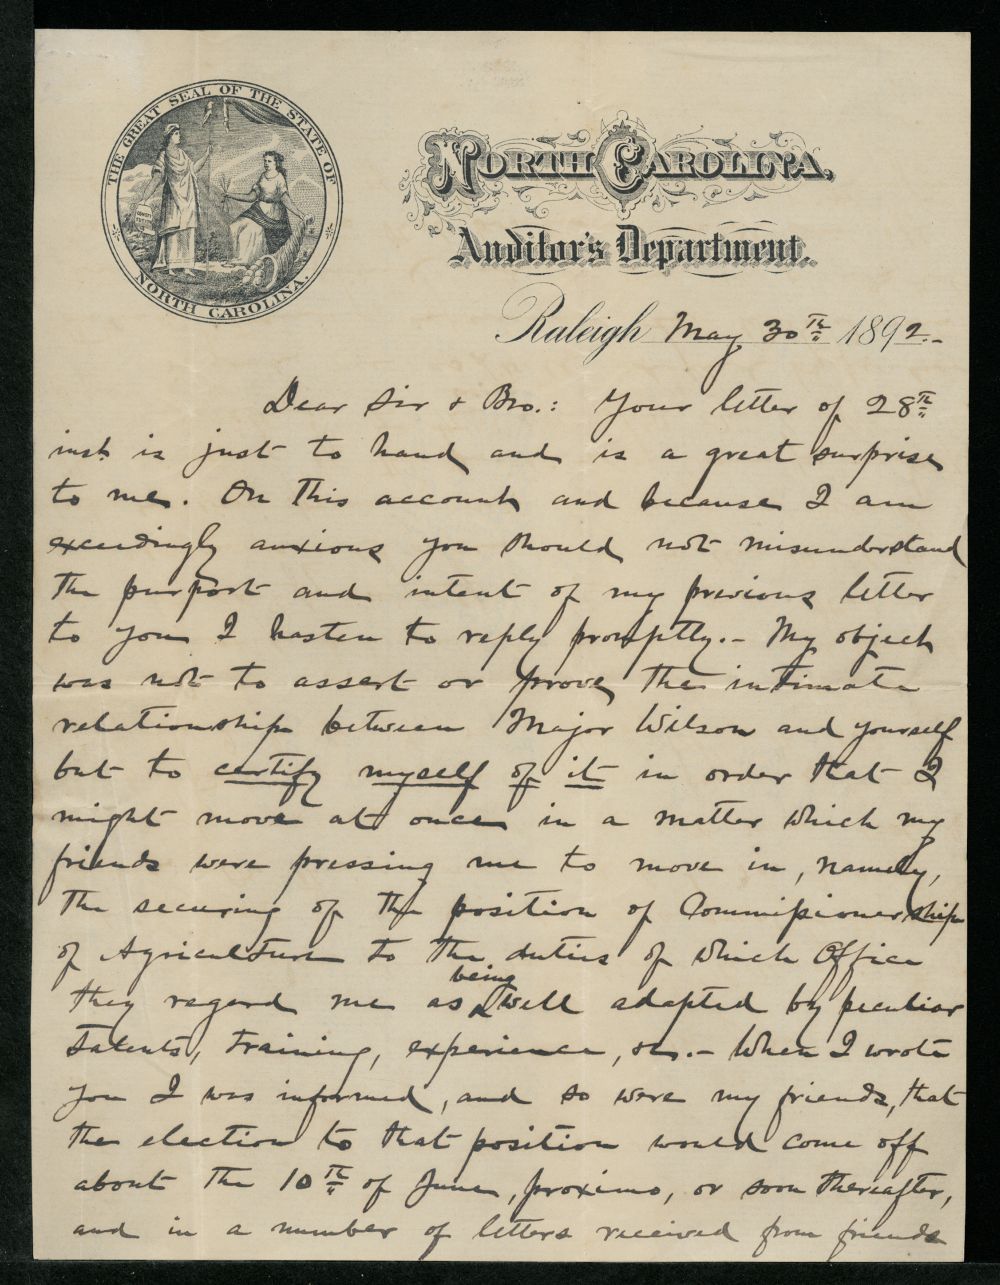 THE GREAT SEAL OF THE STATE OF
NORTH CAROLINA.
NORTH CAROLINA,
Auditor's Department.
Raleigh May 30th 1892.-
Dear Sir & Bro.: Your letter of 28th
inst. is just to hand and is a great surprise
to me. On this account and because I am
exceedingly anxious you should not misunderstand
the purport and intent of my previous letter
to you I hasten to reply promptly.- My object
was not to assert or prove the intimate
relationship between Major Wilson and yourself
but to certify myself of it in order that I
might move at once in a matter which my
friends were pressing me to move in, namely,
the securing of the position of Commissionership
of Agriculture to the duties of which Office
being
they regard me as well adapted by peculiar
talents, training, experience, &c.- When I wrote
you I was informed, and so were my friends, that
the election to that position would come off
about the 10th of June, proximo, or soon thereafter,
and in a number of letters received from friends